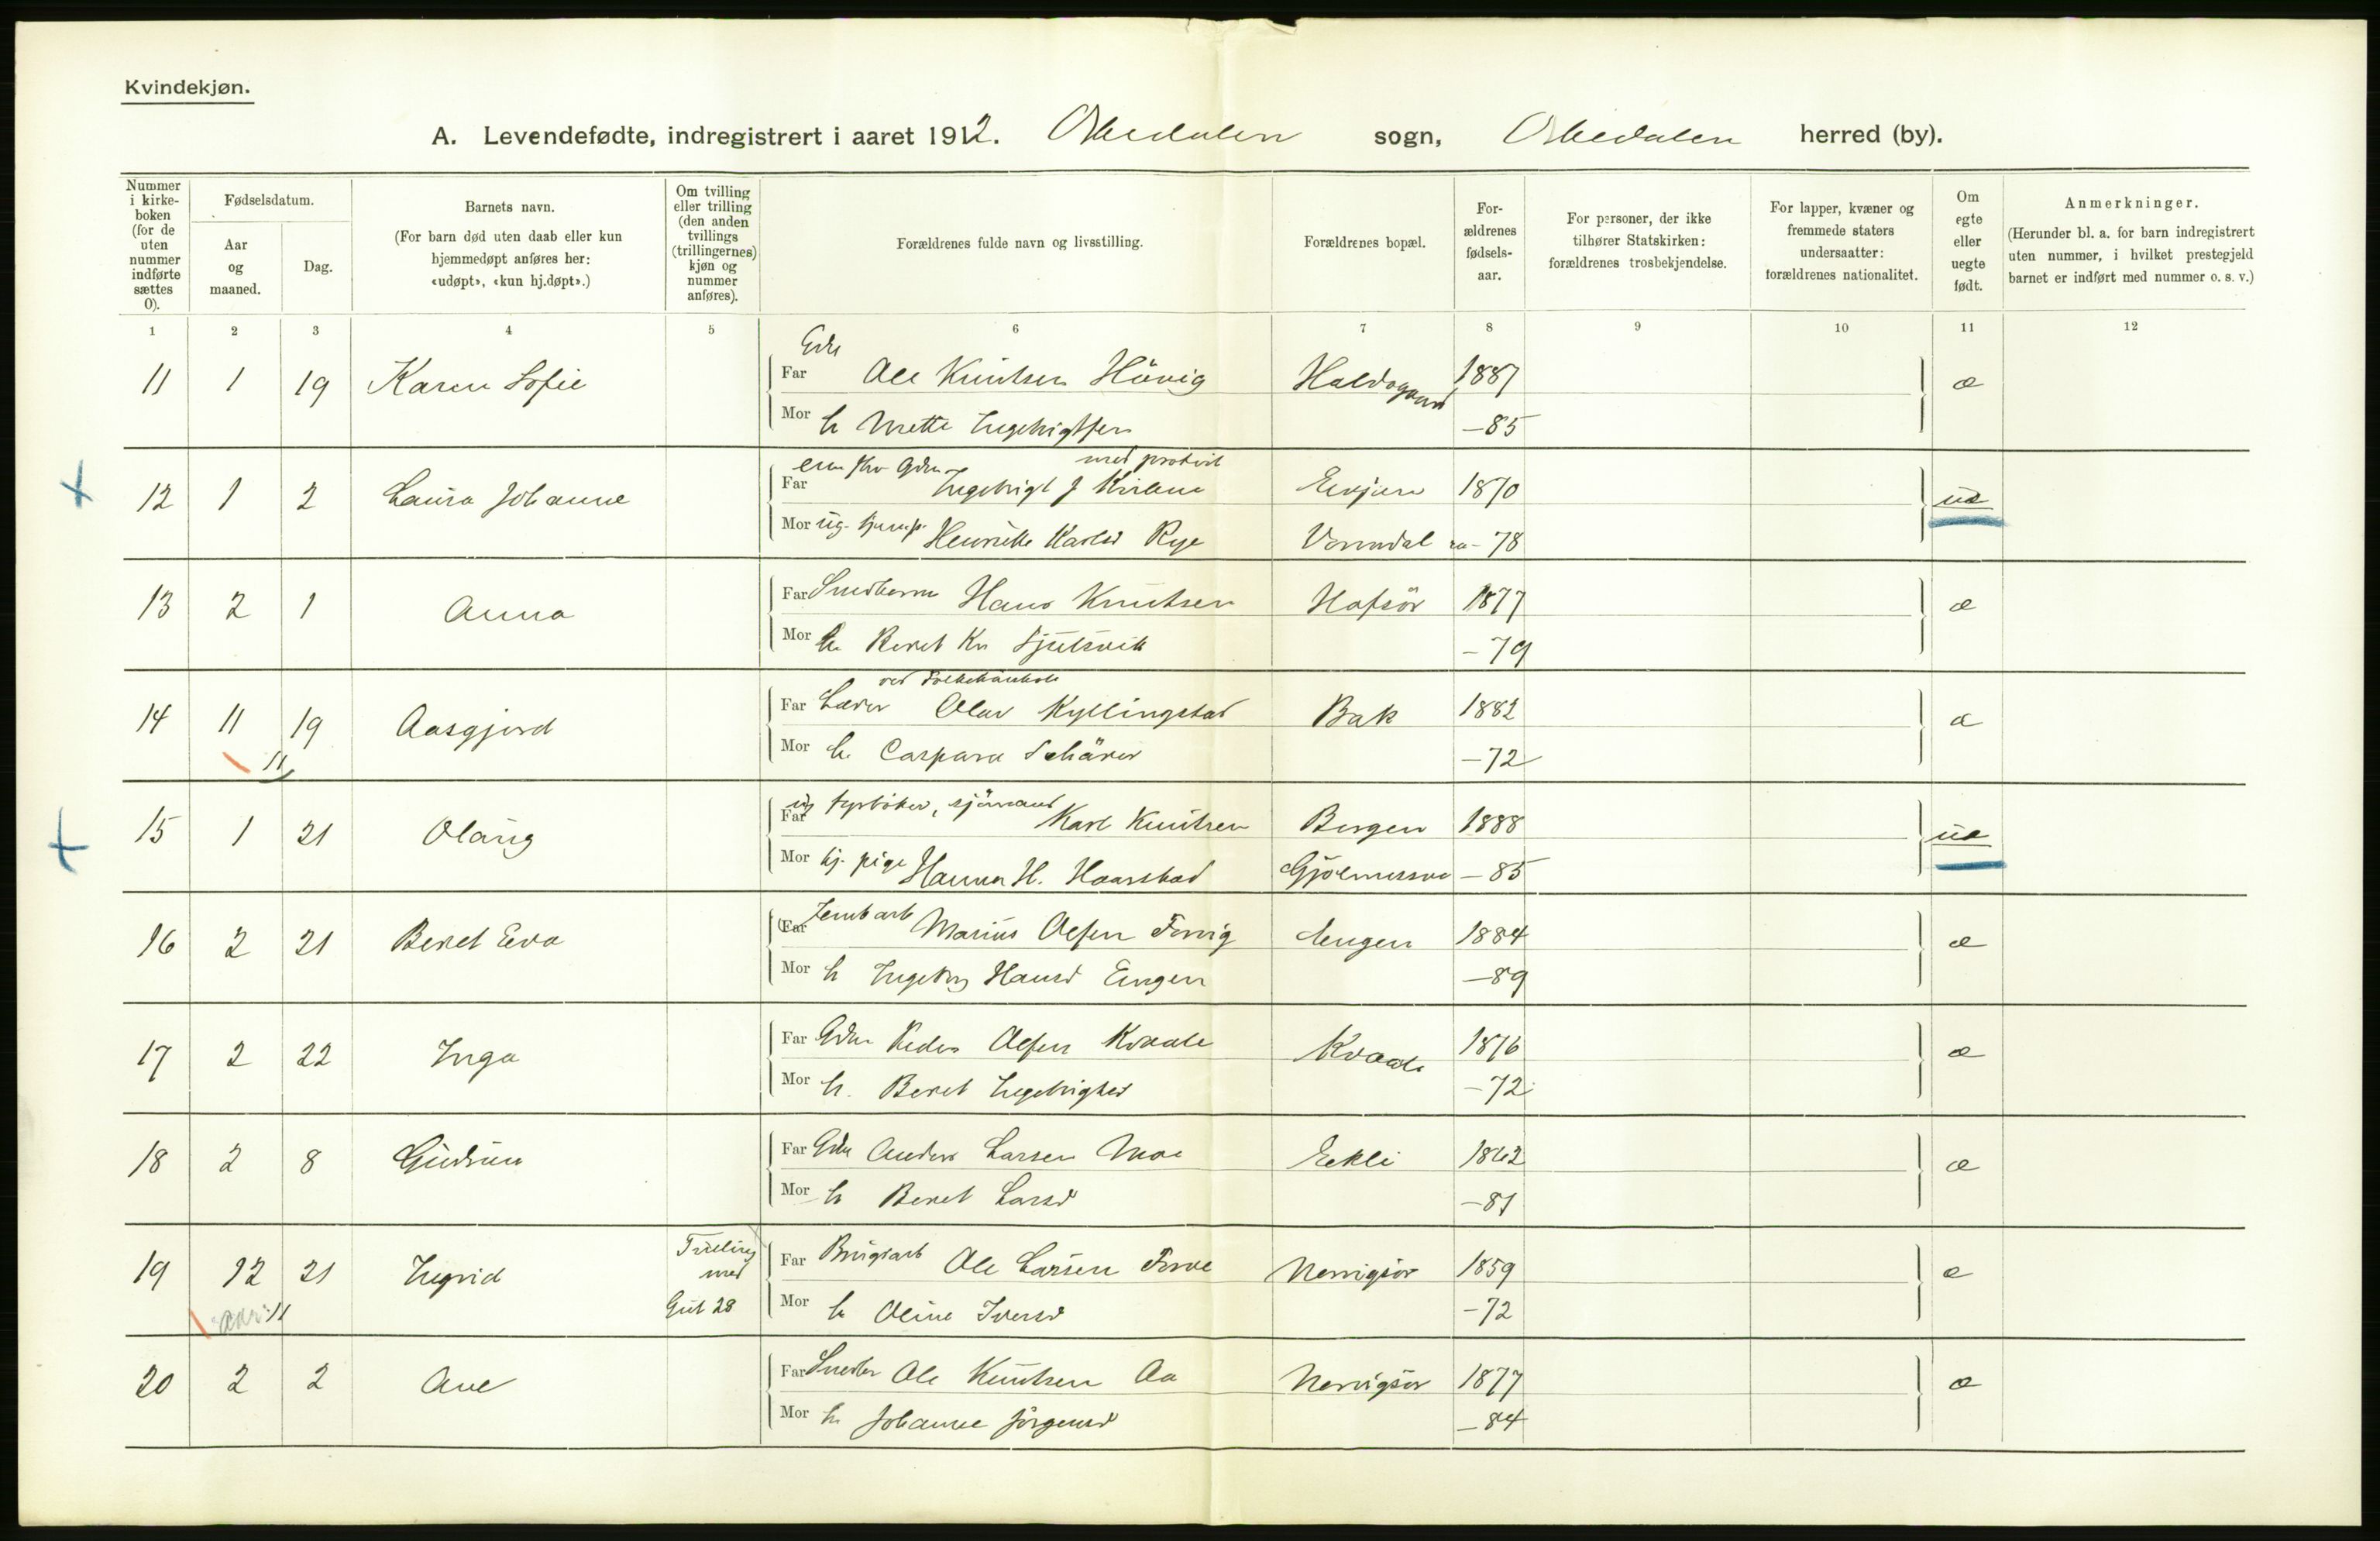 Kvindekjøn.
A. Levendefødte, indregistrert i aaret 1912. Orkedalen sogn, Orkedalen herred (by).
Nummer i kirke-boken (for de uten nummer indførte sættes 0).
Fødselsdatum.
Aar og maaned.
Dag.
Barnets navn.
(For barn død uten daab eller kun hjemmedøpt anføres her: «udøpt», «kun hj.døpt».)
Om tvilling eller trilling (den anden tvillings (trillingernes) kjøn og nummer anføres).
Forældrenes fulde navn og livsstilling.
Forældrenes bopæl.
For-ældrenes fødsels-aar.
For personer, der ikke tilhører Statskirken: forældrenes trosbekjendelse.
For lapper, kvæner og fremmede staters undersaatter: forældrenes nationalitet.
Om egte eller uegte født.
Anmerkninger.
(Herunder bl. a. for barn indregistrert uten nummer, i hvilket prestegjeld barnet er indført med nummer o. s. v.)
1 2 3 4 5 6 7 8 9 10 11 12
11 1 19 Karen Sofie Far Ole Knutsen Hövig 1887 æ
Mor h Mette -85
12 1 2 Laura Johanne Far 1870 uæ
Mor Henrikke Karlsd Rye Vormdal -78
13 2 1 Anna Far Hans Knutsen Hofsör 1877 æ
Mor h. Beret Kn -79
14 11 19 Aasgjerd Far Lærer Olav Kyllingstad Bak 1882 æ
11
Mor h. Caspara Schärer -72
15 1 21 Olaug Far ug fyrböter, sjömand Karl Knutsen Bergen 1888 uæ
Mor tj. pige Hanna H. Haarstad -85
16 2 21 Beret Eva Far Marius Olsen 1884 æ
Mor h Ingeborg Hansd Engen -89
17 2 22 Inga Far Gdm Peder Olsen Kvaale Kvaale 1876 æ
Mor h. Beret Ingebrigtsd -72
18 2 8 Gudrun Far Gdm Anders Larsen Moe Eekli æ
Mor h Beret Larsd -81
19 12 21 Ingrid Tvilling med Gut 28 Far Brugsarb Ole Larsen Nervigsör 1859 æ
11
Mor h Oline Iversd -72
20 2 2 Ane Far Ole Knutsen Aa Nervigsör 1877 æ
Mor h. Johanne Jörgensd -84